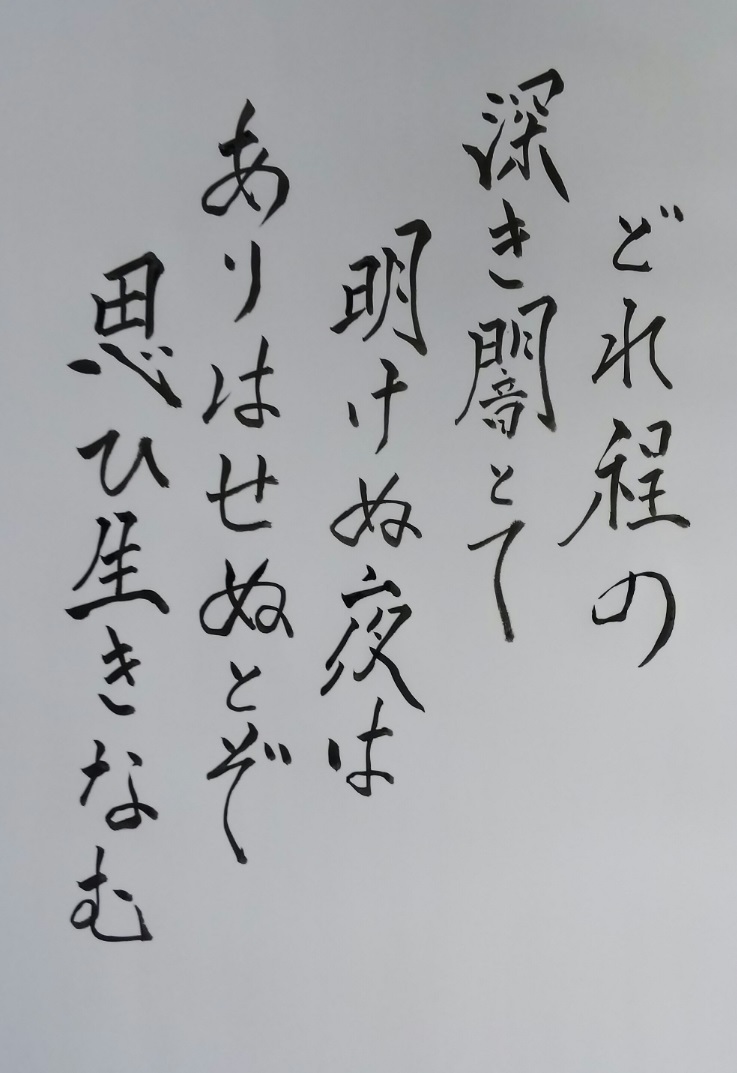 どれ程の
深き闇とて
明けぬ夜は
ありはせぬとぞ
思ひ生きなむ